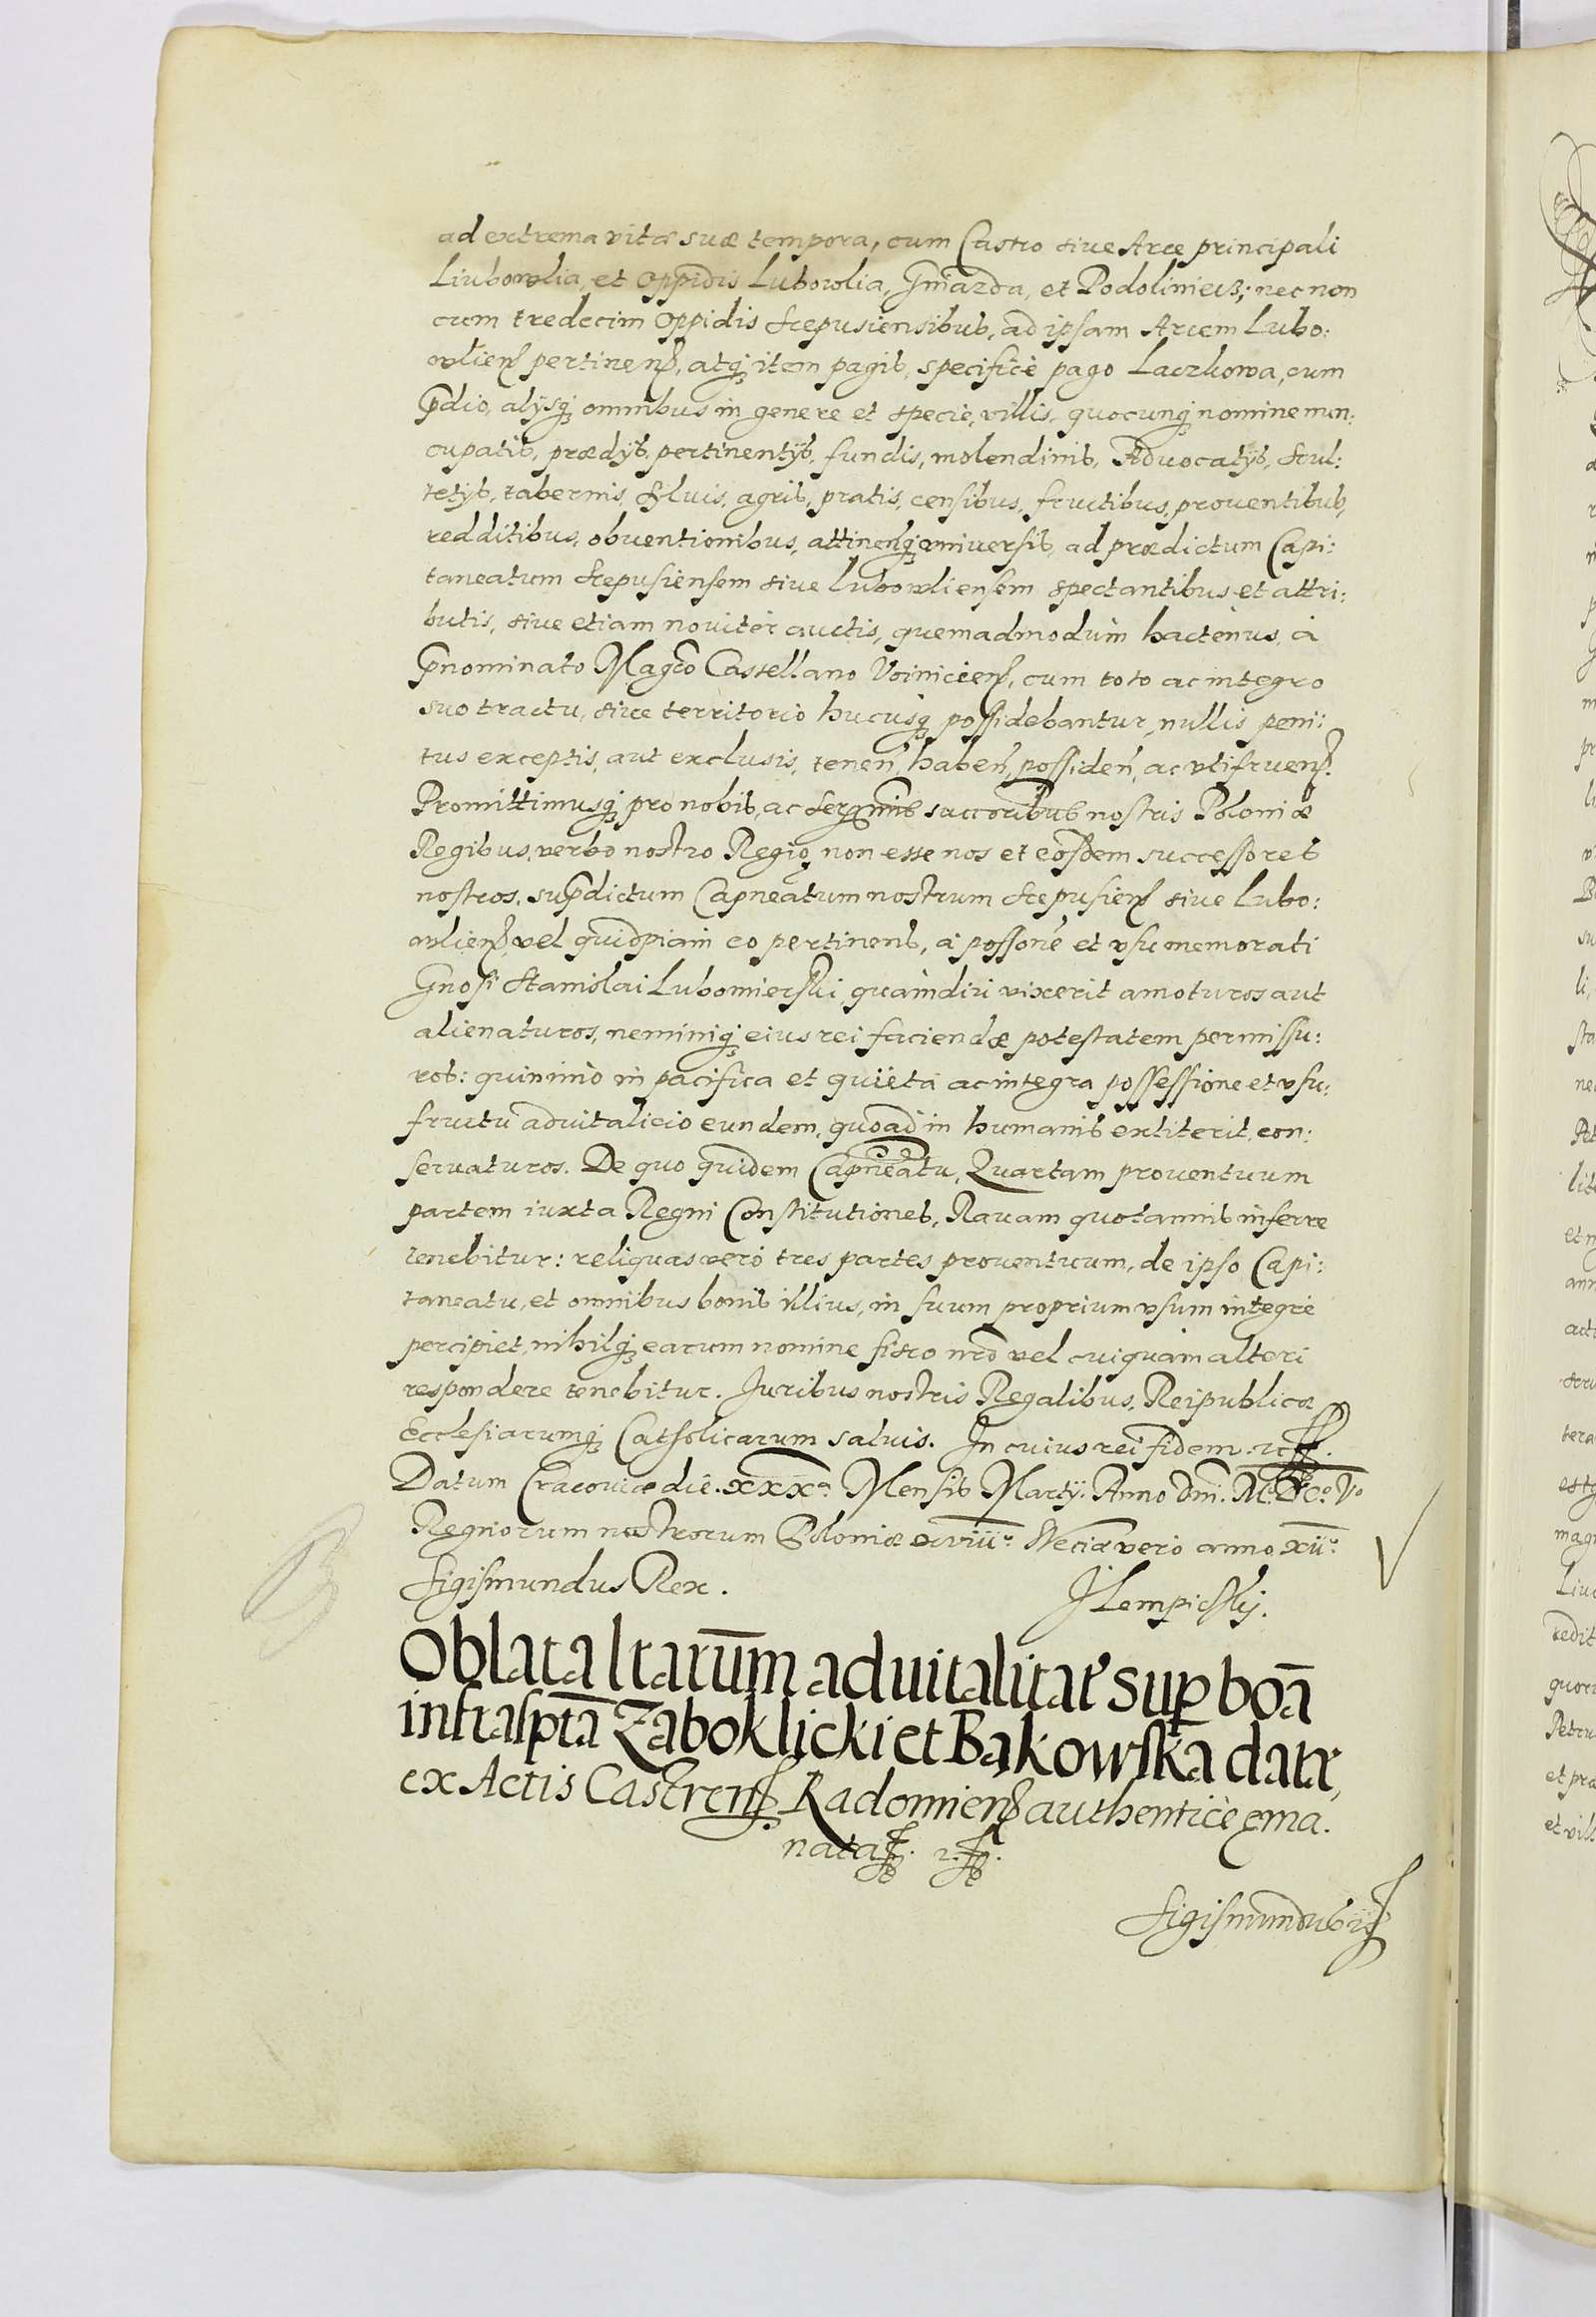 ad extrema vitæ suæ tempora, cum Castro siue Arce principali
Liubowlia, et oppidis Lubowlia, Gniazda, et Podoliniecz; nec non
cum tredecim oppidis Scepusiensibus, ad ipsam Arcem Lubo:
wlieñ pertineñ, atq; item pagis, specifice pago Laczkowa, cum
p̃dio, alijsq; omnibus in genere et specie, villis, quocunq; nomine nun:
cupatis, prædijs, pertinentijs, fundis, molendinis, Aduocatijs, Scul:
tetijs, tabernis, syluis, agris, pratis, censibus, fructibus, prouentibus,
redditibus, obuentionibus, attineñq; vniuersis, ad prædictum Capi:
taneatum Scepusiensem siue Lubowliensem spectantibus et attri:
butis, siue etiam nouitèr auctis, quemadmodùm hactenùs, à
p̃nominato Magc̃o Castellano Voinicieñ, cum toto ac integro
suo tractu, siue territorio hucusq; possidebantur, nullis peni:
tus exceptis, aut exclusis, teneñ, habeñ, possideñ, ac vtifrueñ.
Promittimusq; pro nobis, ac Serẽmis succoribus nostris Poloniæ
Regibus, verbo nostro Regio, non esse nos et eosdem successores
nostros, sup̃dictum Capneatum nostrum Scepusieñ siue Lubo:
wlieñ, vel quidpiam eo pertinens, à possoñe et vsu memorati
Gnosi Stanislai Lubomierski, quamdiu vixerit amoturos aut
alienaturos, neminiq; eius rei faciendæ potestatem permissu:
ros: quinimò in pacifica et quieta ac integra possessione et vsu:
fructu aduitalicio eundem, quoad in humanis extiterit, con:
seruaturos. De quo quidem Capneatu, Quartam prouentuum
partem iuxta Regni Constitutiones, Rauam quotannis inferre
tenebitur: reliquas verò tres partes prouentuum, de ipso Capi:
taneatu, et omnibus bonis illius, in suum proprium vsum integrè
percipiet, nihilq; earum nomine fisco nr̃o vel cuiquàm alteri
respondere tenebitur. Juribus nostris Regalibus, Reipublicæ
Ecclesiarumq; Catholicarum saluis. In cuius rei fidem.
Datum Cracouiæ die. xxxᵃ. Mensis Martij. Anno Dni. M.DCº.Vº
Regnorum nostrorum Poloniæ xviiiº. Sveciæ vero anno xiiº.
Sigismundus Rex. J Lempicskij.
Oblata lrarum̃ aduitalitat' sup boã
infrasptã Zaboklicki et Bąkowska datr,
ex Actis Castreñ Radomieñ authenticè ema.
nata
Sigismundus